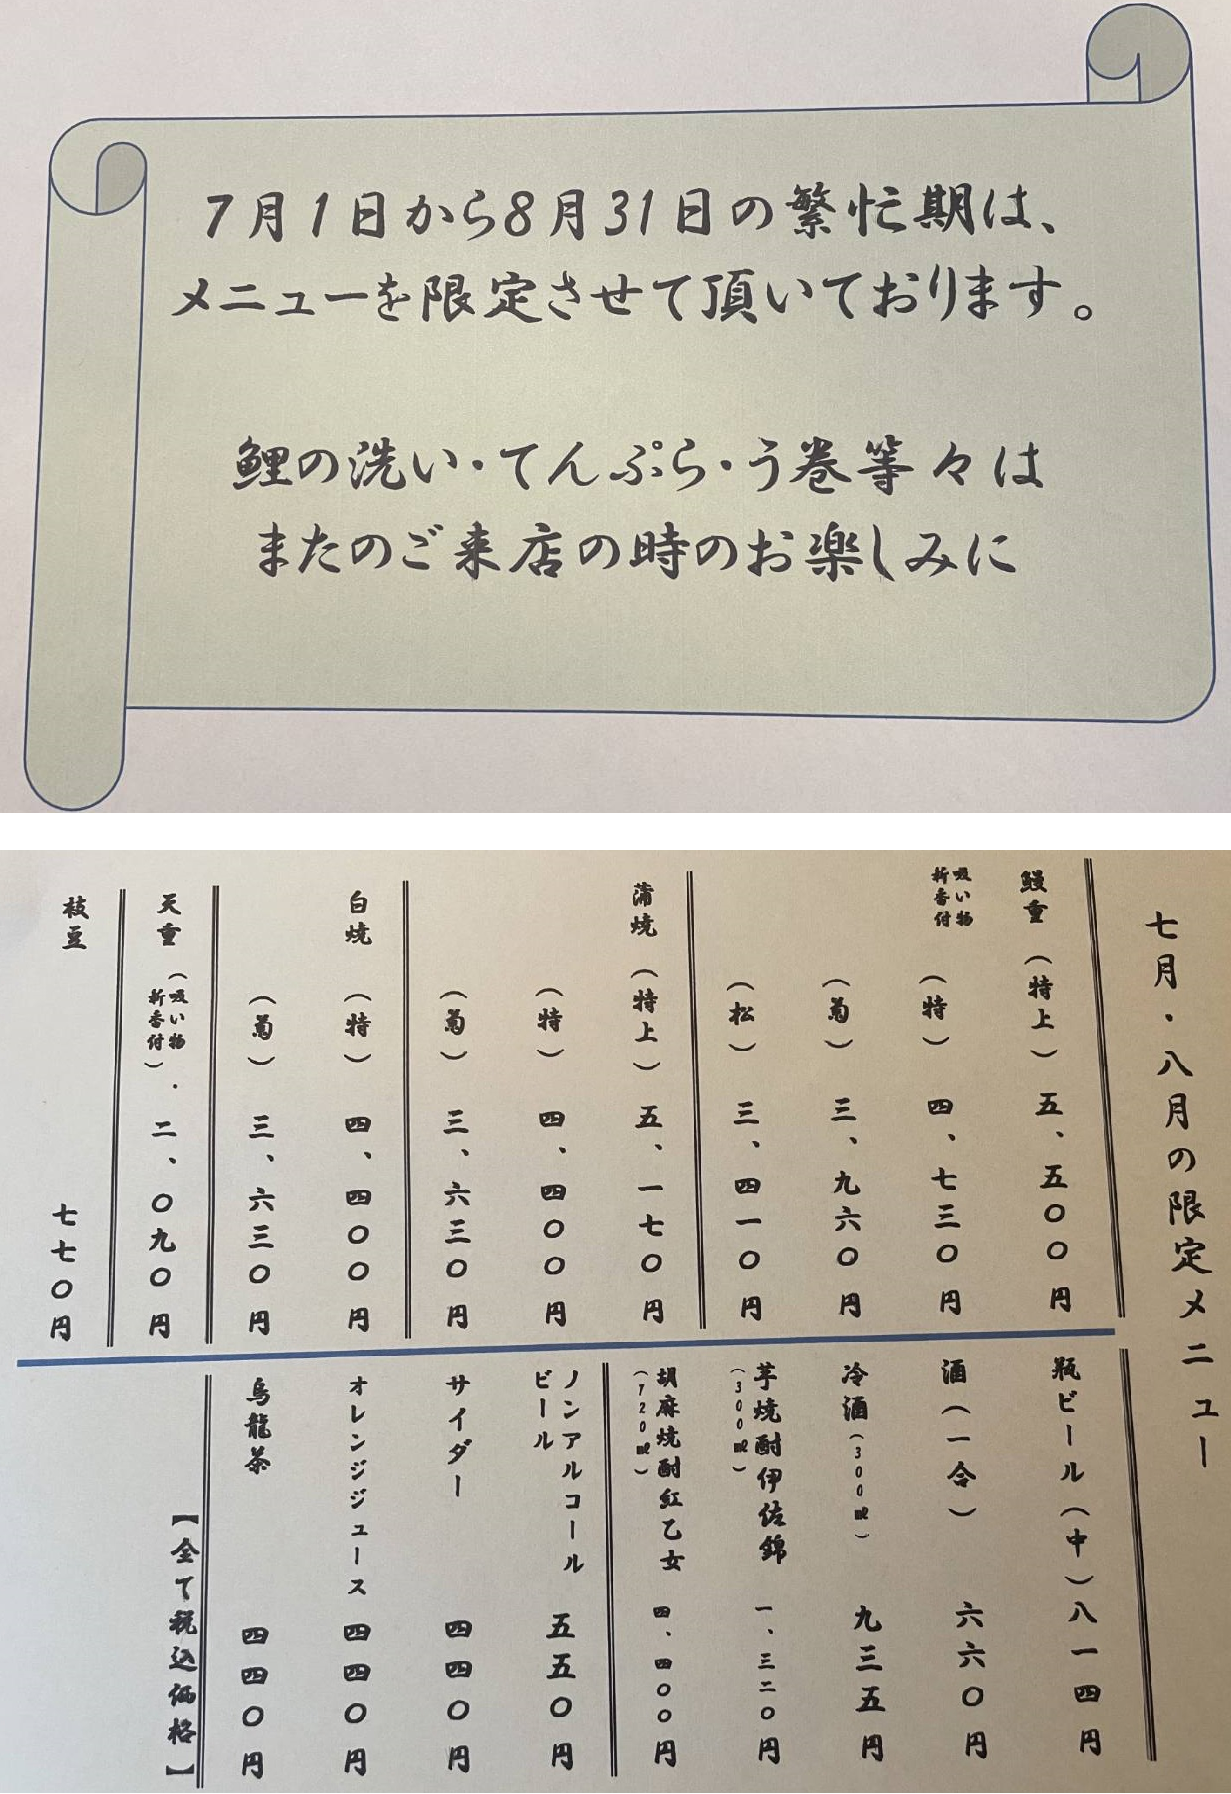 7月1日から8月31日の繁忙期は、
メニューを限定させて頂いております。
鯉の洗い・てんぷら・う巻等々は
またのご来店の時のお楽しみに
七月・八月の限定メニュー
鰻重（特上）五、五〇〇円
吸い物
新香付
（特）四、七三〇円
（菊）三、九六〇円
（松）三、四一〇円
蒲焼（特上）五、一七〇円
（特）四、四〇〇円
（菊）三、六三〇円
白焼（特）四、四〇〇円
（菊）三、六三〇円
天重（吸い物・新香付）二、〇九〇円
枝豆 七七〇円
瓶ビール（中）八一四円
酒（一合）六六〇円
冷酒（300㎖）九三五円
芋焼酎伊佐錦 一、三二〇円
（300㎖）
胡麻焼酎紅乙女 四、四〇〇円
（720㎖）
ノンアルコール
ビール 五五〇円
サイダー 四四〇円
オレンジジュース 四四〇円
烏龍茶 四四〇円
【全て税込価格】